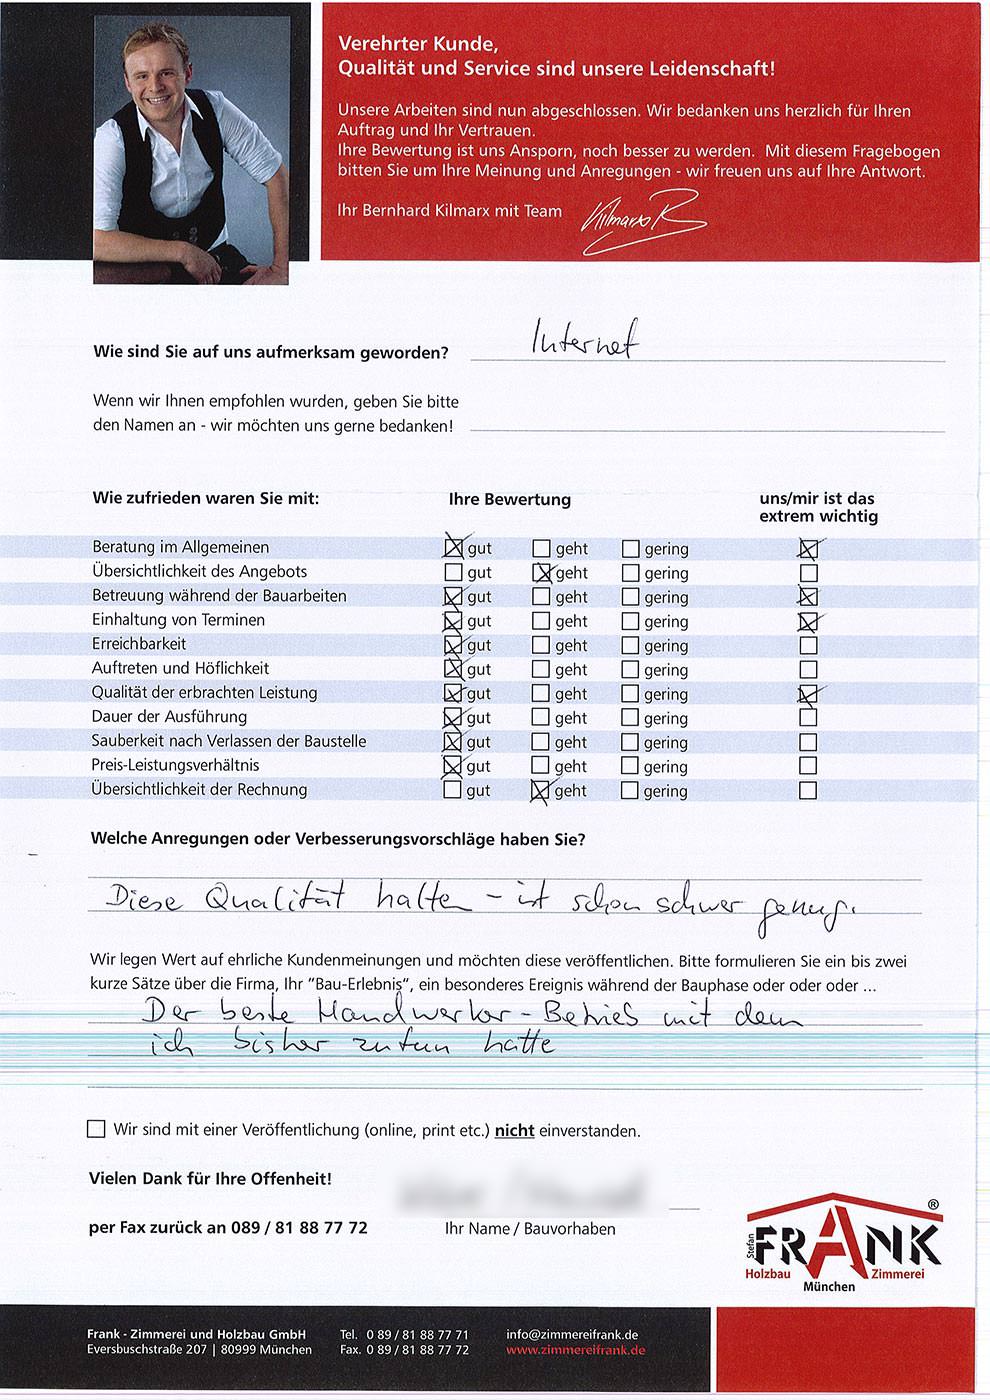 Verehrter Kunde,
Qualität und Service sind unsere Leidenschaft!
Unsere Arbeiten sind nun abgeschlossen. Wir bedanken uns herzlich für Ihren
Auftrag und Ihr Vertrauen.
Ihre Bewertung ist uns Ansporn, noch besser zu werden. Mit diesem Fragebogen
bitten Sie um Ihre Meinung und Anregungen - wir freuen uns auf Ihre Antwort.
Ihr Bernhard Kilmarx mit Team Kilmarx B
Wie sind Sie auf uns aufmerksam geworden? Internet
Wenn wir Ihnen empfohlen wurden, geben Sie bitte
den Namen an - wir möchten uns gerne bedanken!
Wie zufrieden waren Sie mit: Ihre Bewertung uns/mir ist das
extrem wichtig
Beratung im Allgemeinen gut geht gering
Übersichtlichkeit des Angebots gut geht gering
Betreuung während der Bauarbeiten gut geht gering
Einhaltung von Terminen gut geht gering
Erreichbarkeit gut geht gering
Auftreten und Höflichkeit gut geht gering
Qualität der erbrachten Leistung gut geht gering
Dauer der Ausführung gut geht gering
Sauberkeit nach Verlassen der Baustelle gut geht gering
Preis-Leistungsverhältnis gut geht gering
Übersichtlichkeit der Rechnung gut geht gering
Welche Anregungen oder Verbesserungsvorschläge haben Sie?
Diese Qualität halten - ist schon schwer genug.
Wir legen Wert auf ehrliche Kundenmeinungen und möchten diese veröffentlichen. Bitte formulieren Sie ein bis zwei
kurze Sätze über die Firma, Ihr "Bau-Erlebnis", ein besonderes Ereignis während der Bauphase oder oder oder ...
Der beste Handwerker-Betrieb mit dem
ich bisher zutun hatte
Wir sind mit einer Veröffentlichung (online, print etc.) nicht einverstanden.
Vielen Dank für Ihre Offenheit!
per Fax zurück an 089 / 81 88 77 72 Ihr Name / Bauvorhaben
Stefan FRANK ®
Holzbau Zimmerei
München
Frank - Zimmerei und Holzbau GmbH Tel. 0 89 / 81 88 77 71 info@zimmereifrank.de
Eversbuschstraße 207 | 80999 München Fax. 0 89 / 81 88 77 72 www.zimmereifrank.de